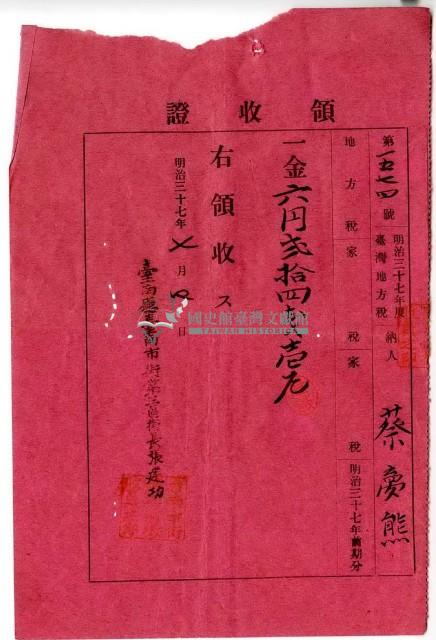 領收證
第一五七四號
明治三十七年度
臺灣地方稅
納人
蔡夢熊
地方稅家稅家稅
明治三十七年前期分
一金六円弍拾四銭壱厘
右領收ス
明治三十七年 七月 日
臺南廳臺南市街第 區街長張建功
國史館臺灣文獻館
TAIWAN HISTORICA